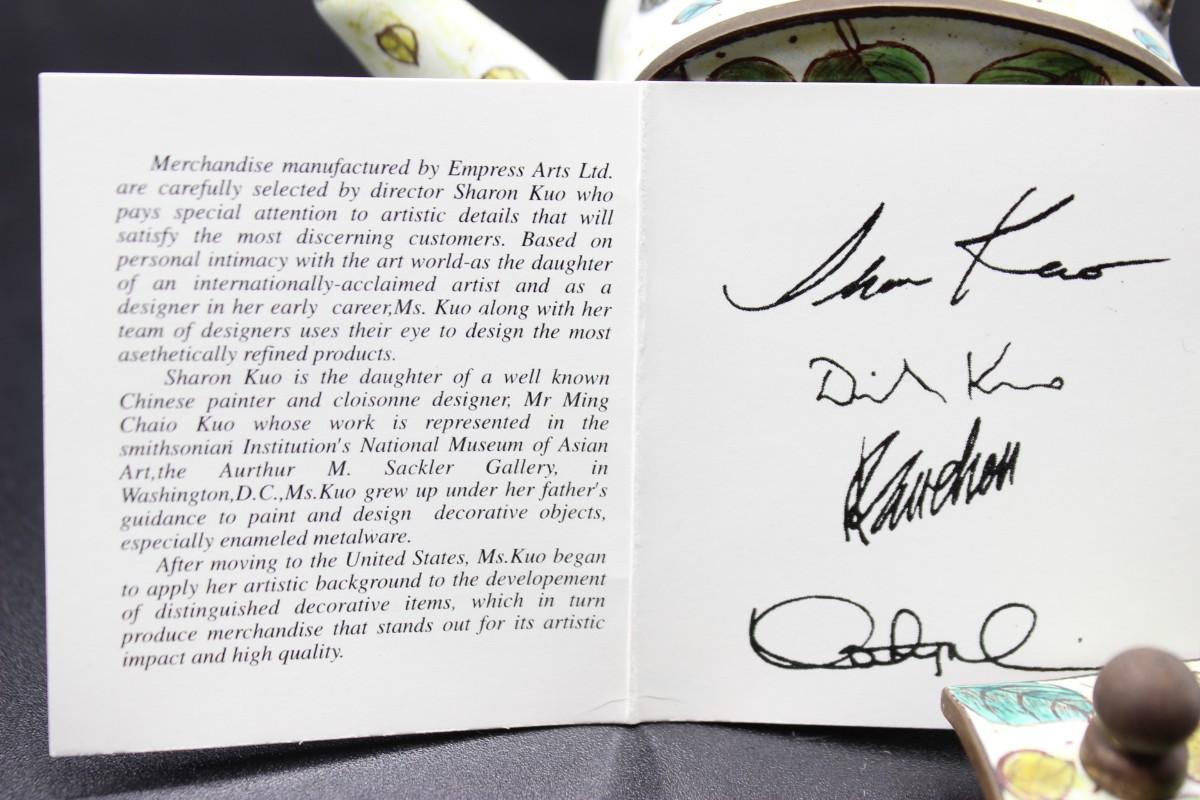 Merchandise manufactured by Empress Arts Ltd.
are carefully selected by director Sharon Kuo who
pays special attention to artistic details that will
satisfy the most discerning customers. Based on
personal intimacy with the art world-as the daughter
of an internationally-acclaimed artist and as a
designer in her early career,Ms. Kuo along with her
team of designers uses their eye to design the most
asethetically refined products.
Sharon Kuo is the daughter of a well known
Chinese painter and cloisonne designer, Mr Ming
Chaio Kuo whose work is represented in the
smithsonian Institution's National Museum of Asian
Art,the Aurthur M. Sackler Gallery, in
Washington,D.C.,Ms.Kuo grew up under her father's
guidance to paint and design decorative objects,
especially enameled metalware.
After moving to the United States, Ms.Kuo began
to apply her artistic background to the developement
of distinguished decorative items, which in turn
produce merchandise that stands out for its artistic
impact and high quality.
Sharon Kuo
Kuo